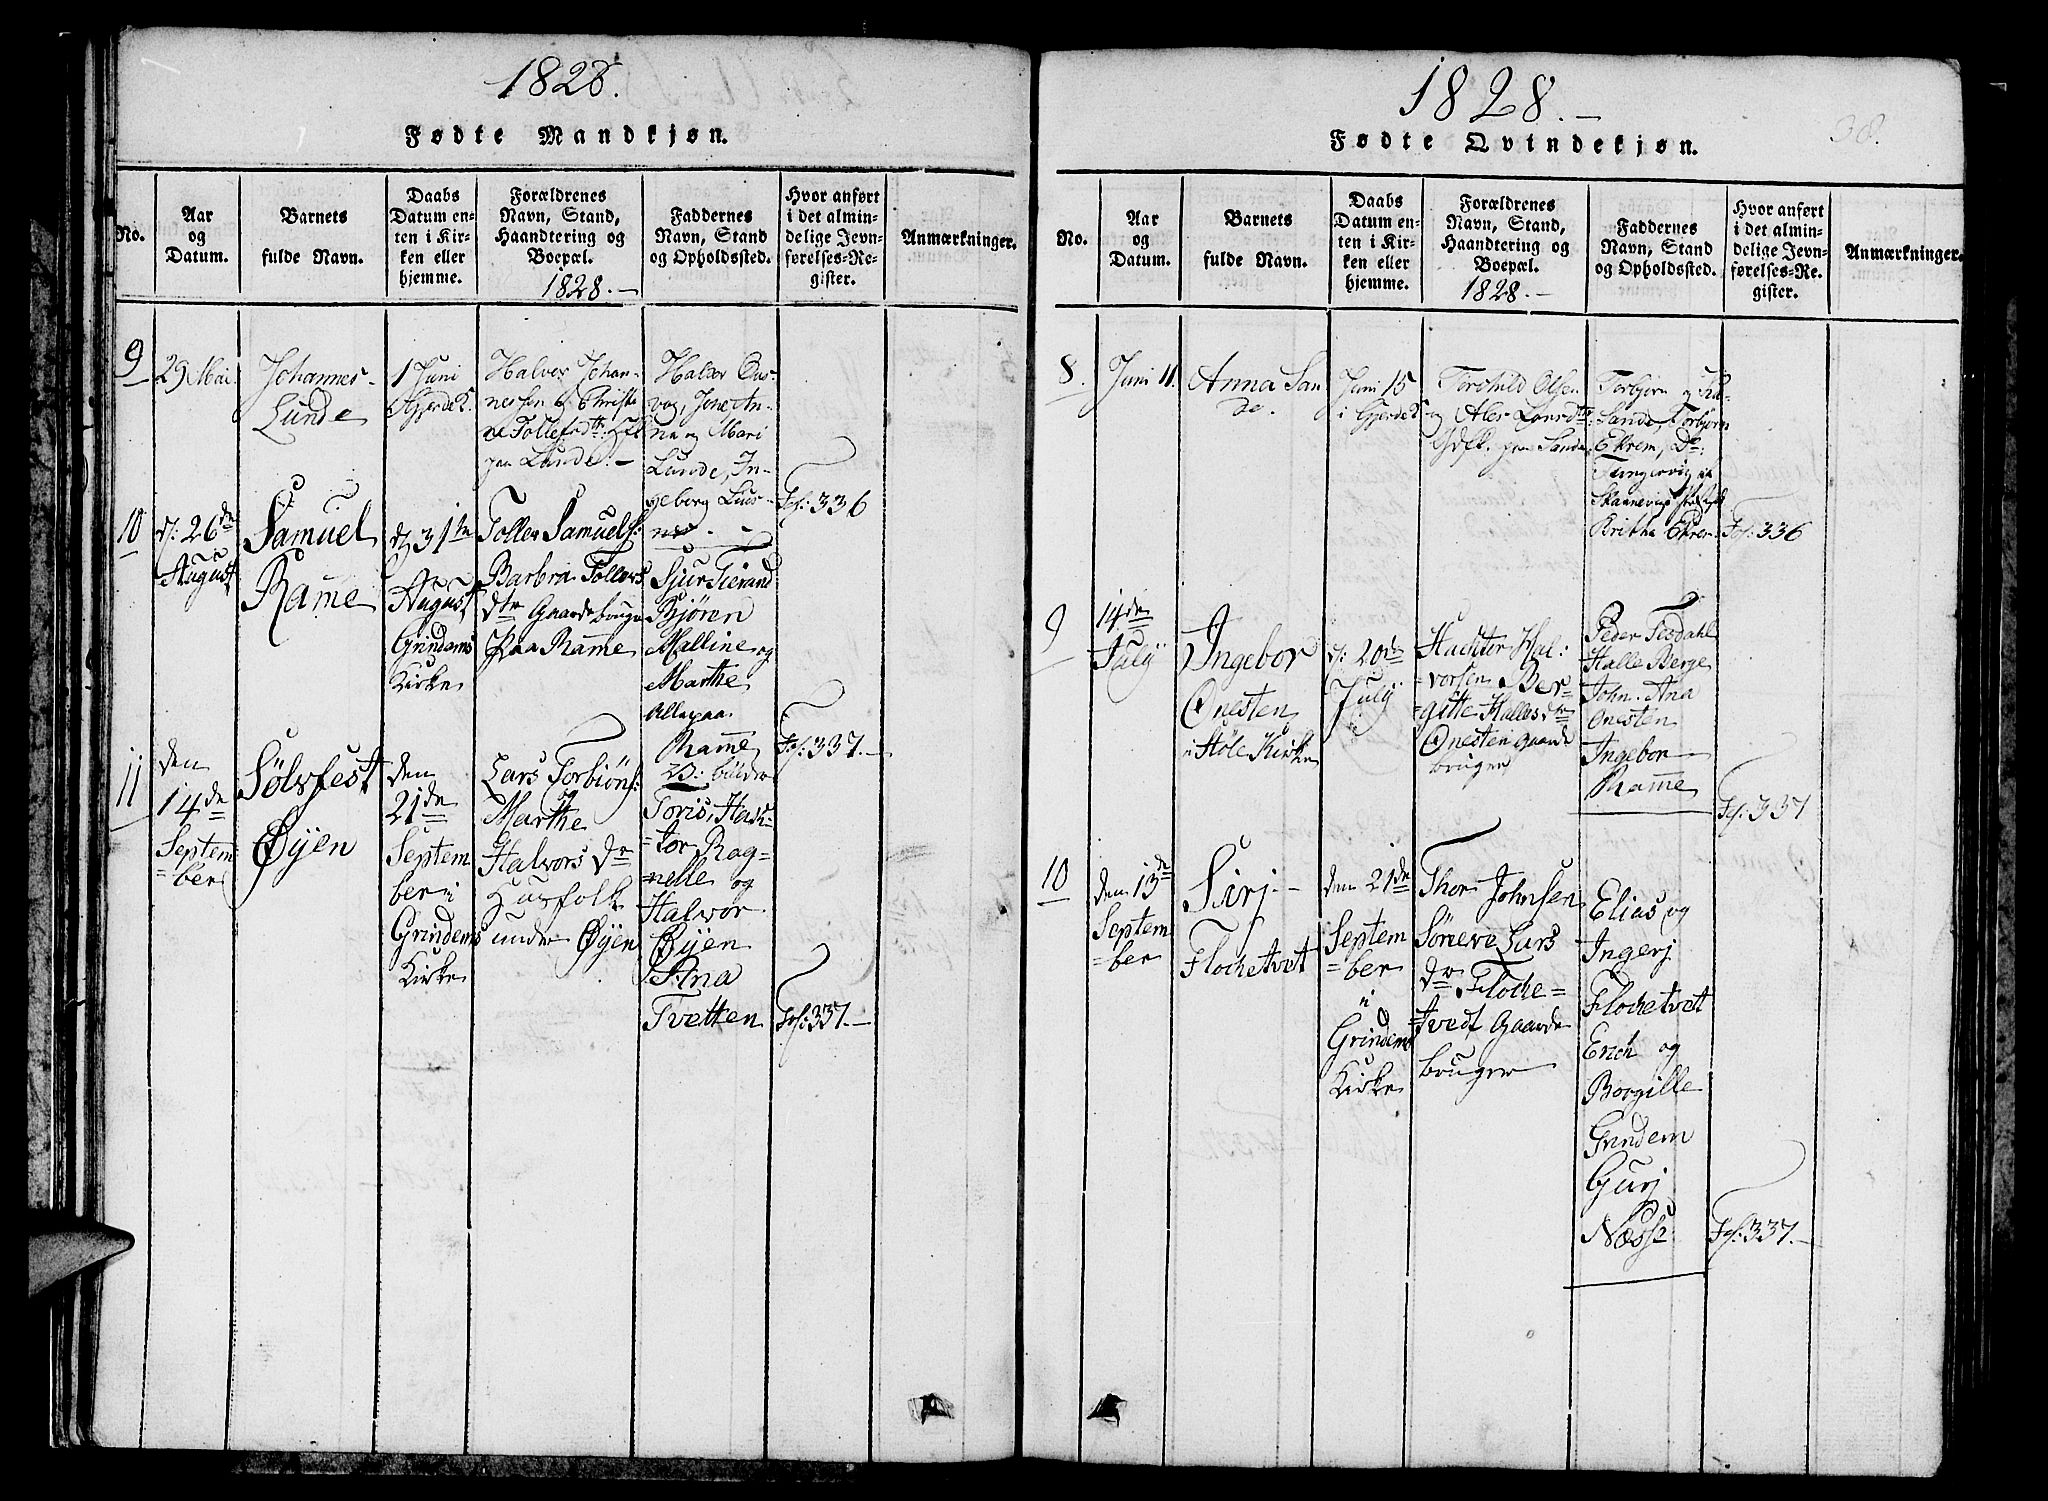 1828.
Fødte Mandkjøn.
No.
Aar
og
Datum.
Barnets
fulde Navn.
Daabs
Datum en-
ten i Kir-
ken eller
hjemme.
Forældrenes
Navn, Stand,
Haandtering og
Boepæl.
1828.-
Faddernes
Navn, Stand
og Opholdssted.
Hvor anført
i det almin-
delige Jevn-
førelses-Re-
gister.
Anmærkninger.
9
29 Mai.
Johannes
Lunde
1 Juni
Gjerde K.
Halvor Johan-
nessen og Christi
ne Tollefsdtr:
paa Lunde.-
Halvor
vog,
og Mari
Lunde, In-
geborg
Fol: 336
10
d: 26de
August
Samuel
Ramme
d 31te
August
Grindems
Kirke
Tollev Samuels:
Barbra Tollevs
dtr Gaardebruger
Paa Ramme
Sjur Tierand
Bjøren
Malline og
Marthe
Alle paa
Ramme
Fol: 337.-
11
den
14de
Septem
=ber
Sølvfest
Øyen
den
21de
Septem
ber i
Grindems
Kirke
Lars Torbiøns:
og
Marthe
Halvors Dr
Husfolk
under Øyen
Toris, Hack-
tor Rag=
nelle og
Halvor
Øyen
Ana
Tvetten
Fol: 337.-
1828.-
38.
Fødte Qvindekjøn.
No.
Aar
og
Datum.
Barnets
fulde Navn.
Daabs
Datum en-
ten i Kir-
ken eller
hjemme.
Forældrenes
Navn, Stand,
Haandtering og
Boepæl.
1828.-
Faddernes
Navn, Stand
og Opholdssted.
Hvor anført
i det almin-
delige Jevn-
førelses-Re-
gister.
Anmærkninger.
8.
Juni 11.
Anna San
de.
Juni 15
i Gjerde K
Torchild Olsen
og
Gdfk. paa Sande
Torbjørn og
Sande, Torbjørn
Ekrem,
Britha Ekrem
Fol: 336
9
14de
July
Ingebor
Onesten
i Støle Kirke
d: 20de
July
Hachtor Hal:
=vorsen Ber-
=gitte Halles dtr
Onesten Gaarde
bruger
Peder Tesdahl
Halle Berge
John. Ana
Onesten
Ingebor
Ramme
Fol: 337
10
den 13de
Septem
=ber
Sirj
Flochetvet
den 21de
Septem
=ber
i
Grindems
Kirke
Thor Johnsen
Søneve Lars
Dr Floche=
=tvedt Gaarde
bruger
Elias og
Ingerj
Flochetvet
Erich og
Borgille
Grindem
Gurj
Næsse
Fol: 337.-